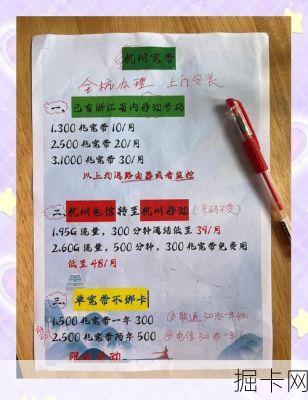 杭州宽带
全杭办理 上门安装
一、已有浙江省内移动号码
1.300 兆宽带 10/月
2.500 兆宽带 20/月
3.1000 兆宽带 30/月
以上均送路由器或者监控
二、杭州电信转至杭州移动（号码不变）
1.95G 流量，300分钟通话低至 39/月
2.60G 流量，500分钟，300兆宽带免费用
低至 48/月
三、单宽带不绑卡
1.500 兆宽带一年 300
2.500 兆宽带两年 500
③联通
④电信
掘卡网